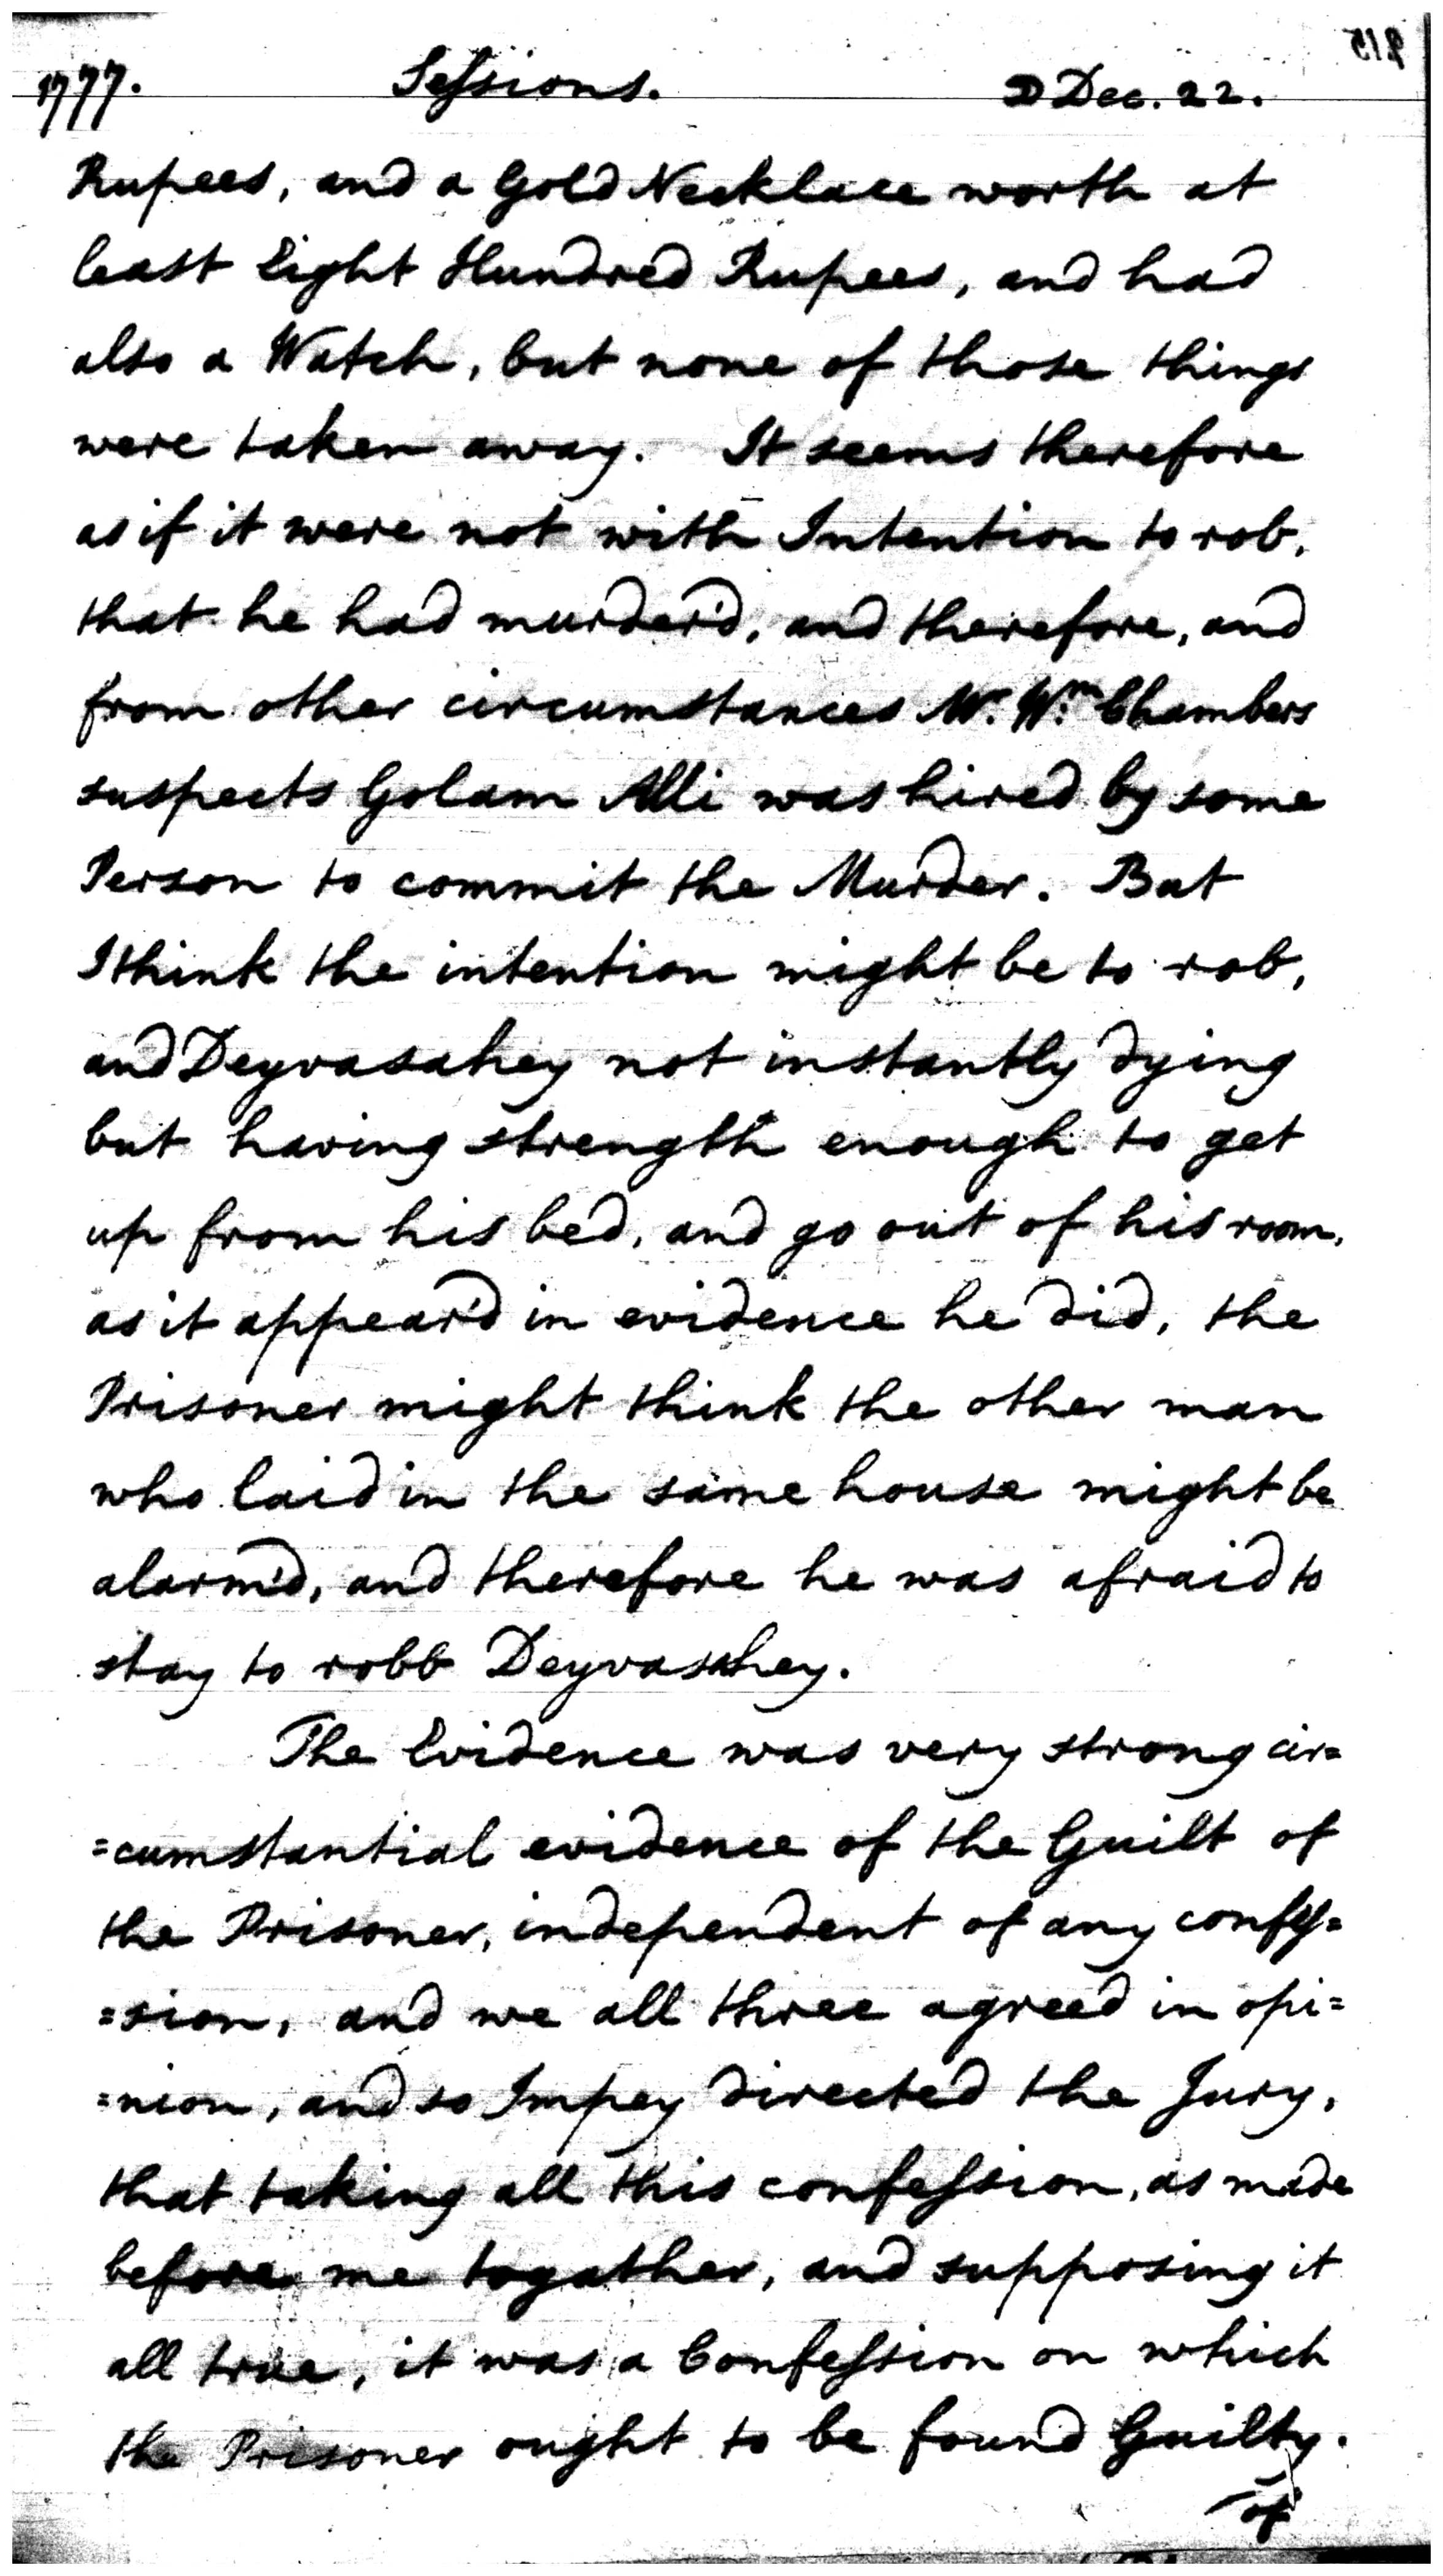 1777. Sessions. ☽ Dec. 22.
Rupees, and a Gold Necklace worth at
least Eight Hundred Rupees, and had
also a Watch, but none of those things
were taken away. It seems therefore
as if it were not with Intention to rob,
that he had murder'd, and therefore, and
from other circumstances Mr. Wm. Chambers
suspects Golam Alli was hired by some
Person to commit the Murder. But
I think the intention might be to rob,
and Deyvasahey not instantly dying
but having strength enough to get
up from his bed, and go out of his room,
as it appear'd in evidence he did, the
Prisoner might think the other man
who laid in the same house might be
alarm'd, and therefore he was afraid to
stay to robb Deyvasahey.
The Evidence was very strong cir=
=cumstantial evidence of the Guilt of
the Prisoner, independent of any confeſ=
=sion, and we all three agreed in opi=
=nion, and so Impey directed the Jury,
that taking all this confeſsion, as made
before me togather, and supposing it
all true, it was a Confeſsion on which
the Prisoner ought to be found Guilty.
of